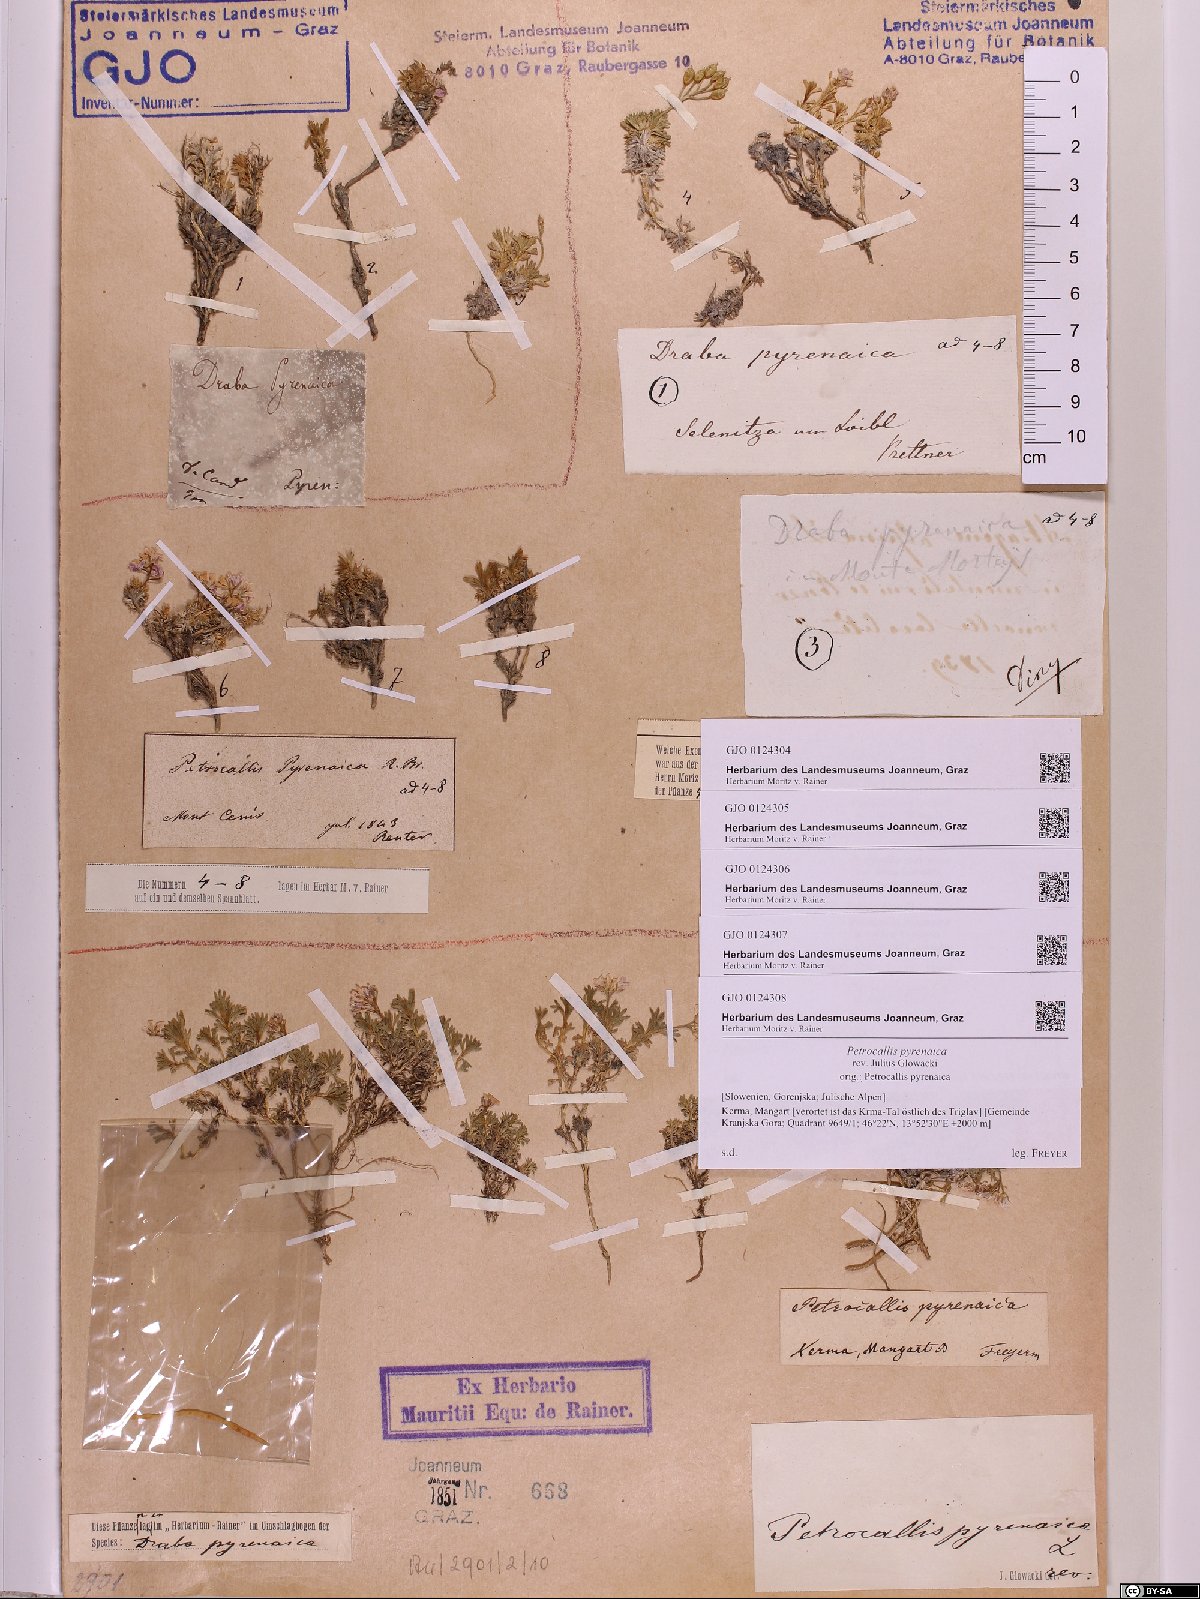 Steiermärkisches Landesmuseum
Joanneum - Graz
GJO
Inventar-Nummer:
Steierm. Landesmuseum Joanneum
Abteilung für Botanik
A-8010 Graz, Raubergasse 10
Steiermärkisches
Landesmuseum Joanneum
Abteilung für Botanik
A-8010 Graz, Raube
0
1
2
3
4
5
6
7
8
9
10
cm
1
2
4
5
Draba Pyrenaica
Pyren:
Draba pyrenaica ad 4-8
1
Selenitza am Loibl
Draba pyrenaica ad 4-8
3
6
7
8
Petrocallis Pyrenaica R. Br.
ad 4-8
Mont Cenis
jul. 1843
Reuter.
Die Nummern 4-8 lagen im Herbar M. v. Rainer
auf ein und demselben Spannblatt.
Welche Exem
war aus der
Herrn Moritz
der Pflanze
GJO 0124304
Herbarium des Landesmuseums Joanneum, Graz
Herbarium Moritz v. Rainer
GJO 0124305
Herbarium des Landesmuseums Joanneum, Graz
Herbarium Moritz v. Rainer
GJO 0124306
Herbarium des Landesmuseums Joanneum, Graz
Herbarium Moritz v. Rainer
GJO 0124307
Herbarium des Landesmuseums Joanneum, Graz
Herbarium Moritz v. Rainer
GJO 0124308
Herbarium des Landesmuseums Joanneum, Graz
Herbarium Moritz v. Rainer
Petrocallis pyrenaica
rev. Julius Glowacki
orig.: Petrocallis pyrenaica
[Slowenien, Gorenjska; Julische Alpen]
Kerma, Mangart [verortet ist das Krma-Tal östlich des Triglav] [Gemeinde
Kranjska Gora; Quadrant 9649/1; 46°22'N, 13°52'30"E +2000 m]
s.d. leg. FREYER
Petrocallis pyrenaica
Kerma, Mangart
Ex Herbario
Mauritii Equ: de Rainer.
Joanneum
Jahrgang
1851 Nr. 668
GRAZ.
2901/2/10
Diese Pflanze lag im „Herbarium-Rainer" im Umschlagbogen der
Species: Draba pyrenaica
2901
Petrocallis pyrenaica
L
rev:
J. Glowacki
CC BY-SA